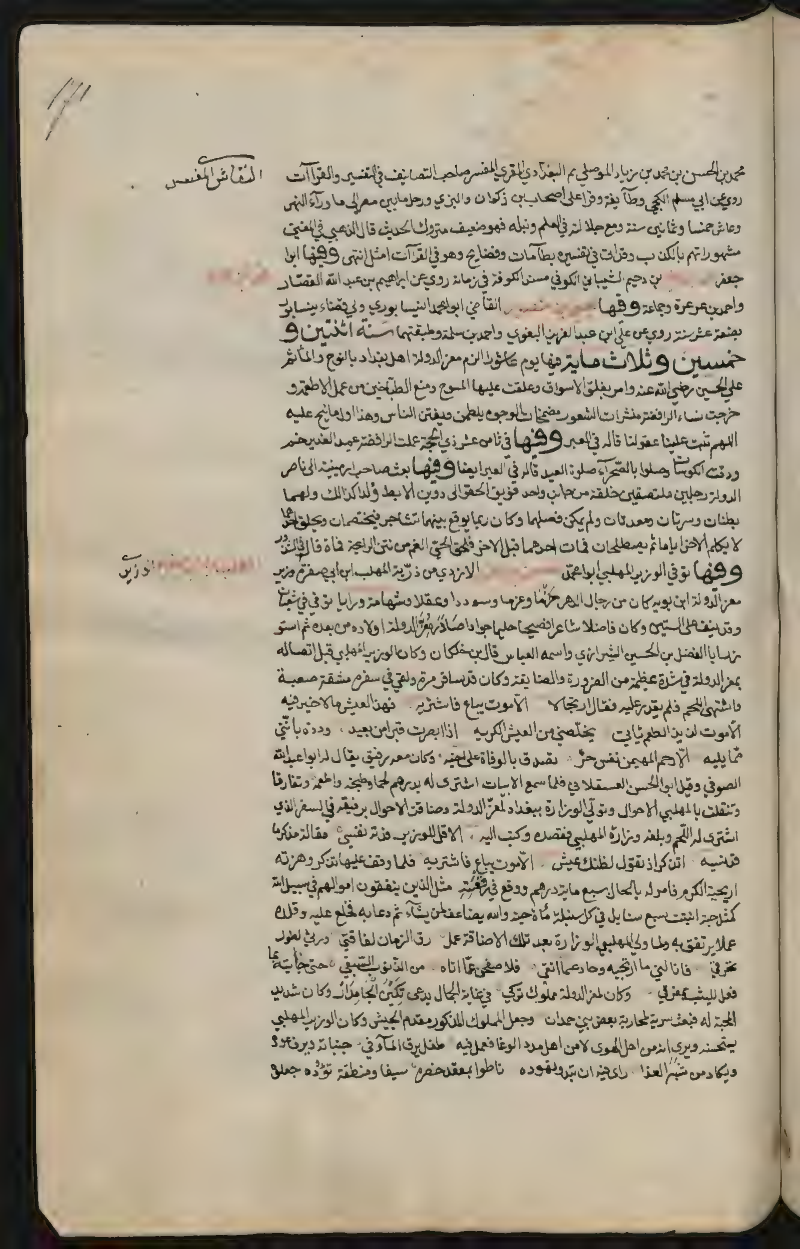 ١٧١
النقاش المفسر
محمد بن الحسن بن محمد بن زياد الموصلي ثم البغدادي المقري المفسر صاحب التصانيف في التفسير والقراآت
روي عن ابي مسلم الكجي وطآيفة وقرا على اصحاب بن ذكوان والبزي ورحل ما بين مصر الى ما ورآء النهر
وعاش خمسا وثمانين سنة ومع جلالته في العلم ونبله فهو ضعيف متروك الحديث قال الذهبي في المغني
مشهور اتهم بالكذب وقد اتي في تفسيره بطآمات وفضايح وهو في القراآت امثل انتهى وفيها ابو
جعفر بن دحيم الشيباني الكوفي مسند الكوفة في زمانه روي عن ابراهيم بن عبد الله القصار
واحمد بن عرعرة وجماعة وفيها القاضي ابو محمد النيسابوري ولي قضاء نيسابور
بضعة عشر سنة روي عن علي ابن عبد العزيز البغوي واحمد بن سلمة وطبقتهما سنة اثنتين و
خمسين وثلاث ماية فيها يوم عاشورا الزم معز الدولة اهل بغداد بالنوح والمآتم
على الحسين رضي الله عنه وامر بغلق الاسواق وعلقت عليها المسوح ومنع الطباخين من عمل الاطعمة و
خرجت نساء الرافضة منشرات الشعور مضمخات الوجوه يلطمن ويفتن الناس وهذا اول ما نيح عليه
اللهم ثبت علينا عقولنا قاله في العبر وفيها في ثامن عشر ذي الحجة عملت الرافضة عيد الغدير خم
ودقت الكوسات وصلوا بالصحرآء صلوة العيد قاله في العبر ايضا وفيها بعث صاحب ارمينية الى ناصر
الدولة رجلين ملتصقين خلقة من جانب واحد فويق الحقو الى دوين الابط ولدا كذالك ولهما
بطنان وسرتان ومعدتان ولم يمكن فصلهما وكان ربما يوقع بينهما تشاجر فيختصمان ويحلف احدهما
لا يكلم الاخر اياما ثم يصطلحان فمات احدهما قبل الاخر فلحق الحي الغم من نتن الرايحة فمات قاله
وفيها توفي الوزير المهلبي ابو محمد الازدي من ذرية المهلب ابن ابي صفرة وزير
الوزير
معز الدولة ابن بويه كان من رجال الدهر حزما وعزما وسوددا وعقلا وشهامة ورايا توفي في شعبان
وقد نيف على الستين وكان فاضلا شاعرا فصيحا حليما جوادا صادر معز الدولة اولاده من بعده ثم استو
زر ابا الفضل بن الحسين الشيرازي واسمه العباس قال بن خلكان وكان الوزير المهلبي قبل اتصاله
بمعز الدولة في شدة عظيمة من الضرورة والضايقة وكان قد سافر مرة ولقي في سفره مشقة صعبة
واشتهى اللحم فلم يقدر عليه فقال ارتجالا الا موت يباع فاشتريه فهذا العيش ما لا خير فيه
الا موت لذيذ الطعم ياتي يخلصني من العيش الكريه اذا ابصرت قبرا من بعيد وددت بانني
مما يليه الا رحم المهيمن نفس حر تصدق بالوفاة على اخيه وكان معه رفيق يقال له ابو عبد الله
الصوفي وقيل ابو الحسن العسقلاني فلما سمع الابيات اشترى له بدرهم لحما وطبخه واطعمه وتفارقا
وتنقلت بالمهلبي الاحوال وتولي الوزارة ببغداد لمعز الدولة وضاقت الاحوال برفيقه في السفر الذي
اشترى له اللحم وبلغه وزارة المهلبي فقصده وكتب اليه الا قل للوزير فدته نفسي مقالة مذكر ما
قد نسيه اتذكر اذ تقول لظنك عيش الا موت يباع فاشتريه فلما وقف عليها تذكر وهزته
اريحية الكرم فامر له بالحال سبع ماية درهم ووقع في رقعته مثل الذين ينفقون اموالهم في سبيل الله
كمثل حبة انبتت سبع سنابل في كل سنبلة مأة حبة والله يضاعف لمن يشآء ثم دعا به فخلع عليه وقلده
عملا يرتفق به ولما ولي المهلبي الوزارة بعد تلك الاضاقة عمل رق الزمان لفاقتي ورثى لطول
تحرقي فانالني ما ارتجيه وحاد عما اتقي فلا صفحن عما اتاه من الذنوب السبق حتى جنايته بما
فعل المشيب بمفرقي وكان لمعز الدولة مملوك تركي في غاية الجمال يدعى تكين الجامدار وكان شديد
المحبة له فبعث سرية لمحاربة بعض بني حمدان وجعل المملوك المذكور مقدم الجيش وكان الوزير المهلبي
يستحسنه ويرى انه من اهل الهوى لا من اهل مدد الوغا فعمل فيه طفل يرق المآء في جنباته ويرف عوده
ويكاد من شبه العذا رى فيه ان تبدو نهوده ناطوا بمعقد خصره سيفا ومنطقة تؤده جعلو